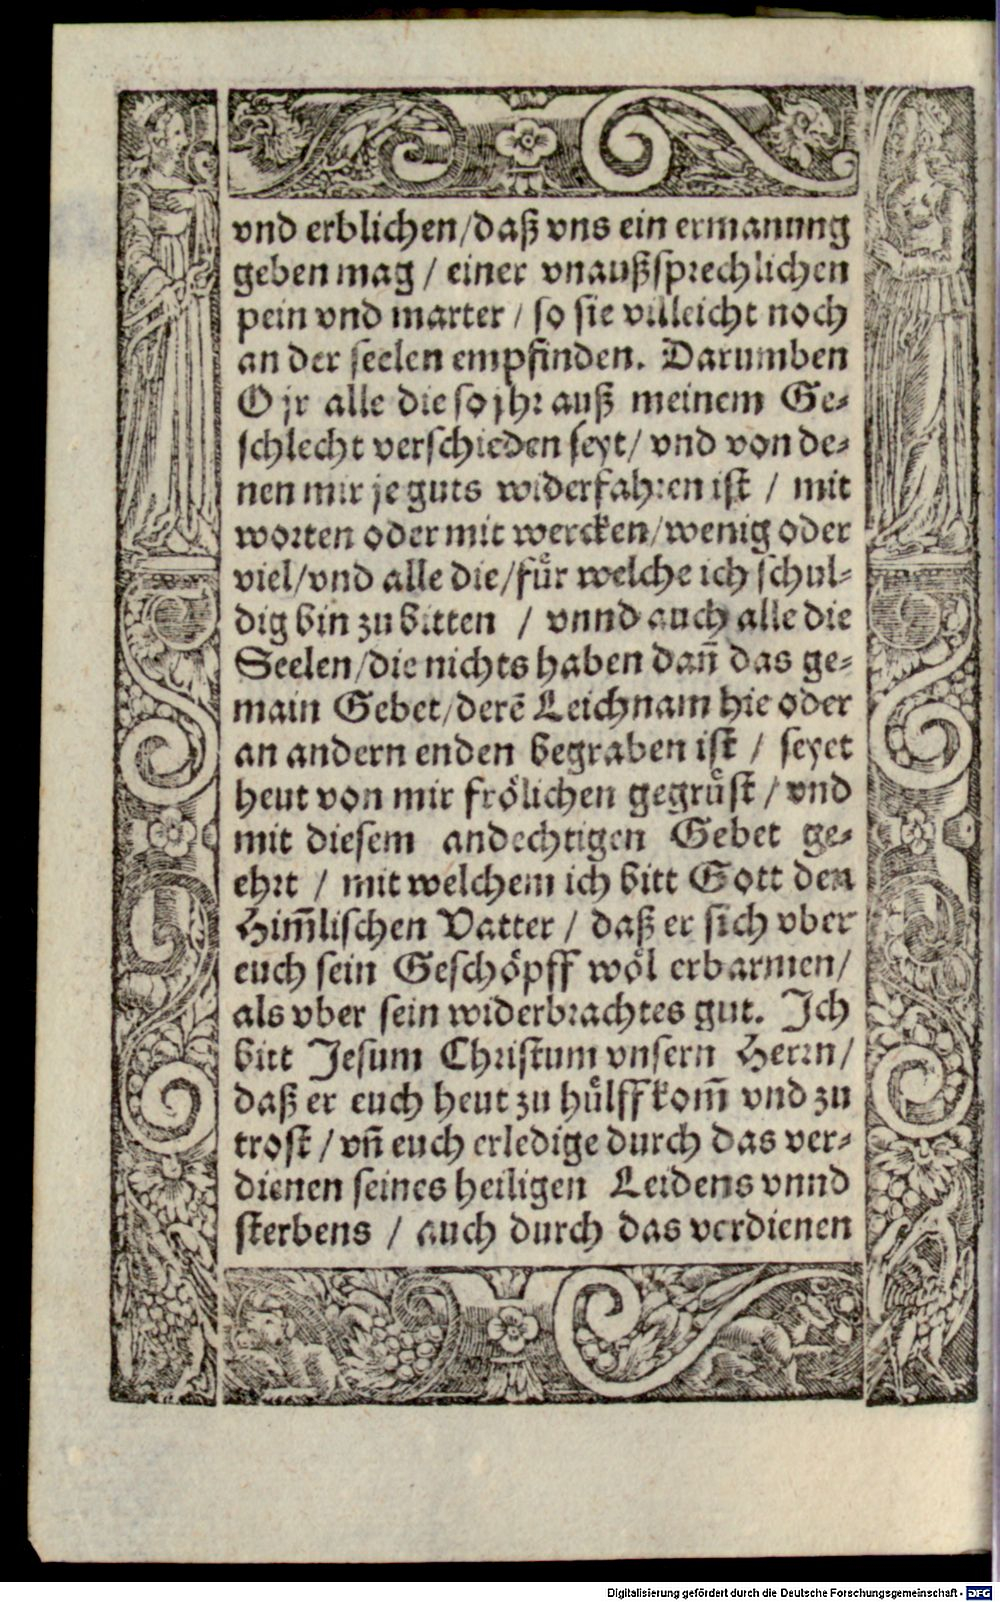 vnd erblichen/daß vns ein ermanung
geben mag / einer vnaußsprechlichen
pein vnd marter / so sie villeicht noch
an der seelen empfinden. Darumben
O jr alle die so jhr auß meinem Ge-
schlecht verschieden seyt/ vnd von de-
nen mir je guts widerfahren ist / mit
worten oder mit wercken/wenig oder
viel/vnd alle die/fuͤr welche ich schul-
dig bin zu bitten / vnnd auch alle die
Seelen/die nichts haben dañ das ge-
main Gebet/derẽ Leichnam hie oder
an andern enden begraben ist / seyet
heut von mir froͤlichen gegruͤst / vnd
mit diesem andechtigen Gebet ge-
ehrt / mit welchem ich bitt Gott den
Him̃lischen Vatter / daß er sich vber
euch sein Geschoͤpff woͤl erbarmen/
als vber sein widerbrachtes gut. Ich
bitt Jesum Christum vnsern Herrn/
daß er euch heut zu huͤlff kom̃ vnd zu
trost / vñ euch erledige durch das ver-
dienen seines heiligen Leidens vnnd
sterbens / auch durch das verdienen
Digitalisierung gefördert durch die Deutsche Forschungsgemeinschaft - DFG